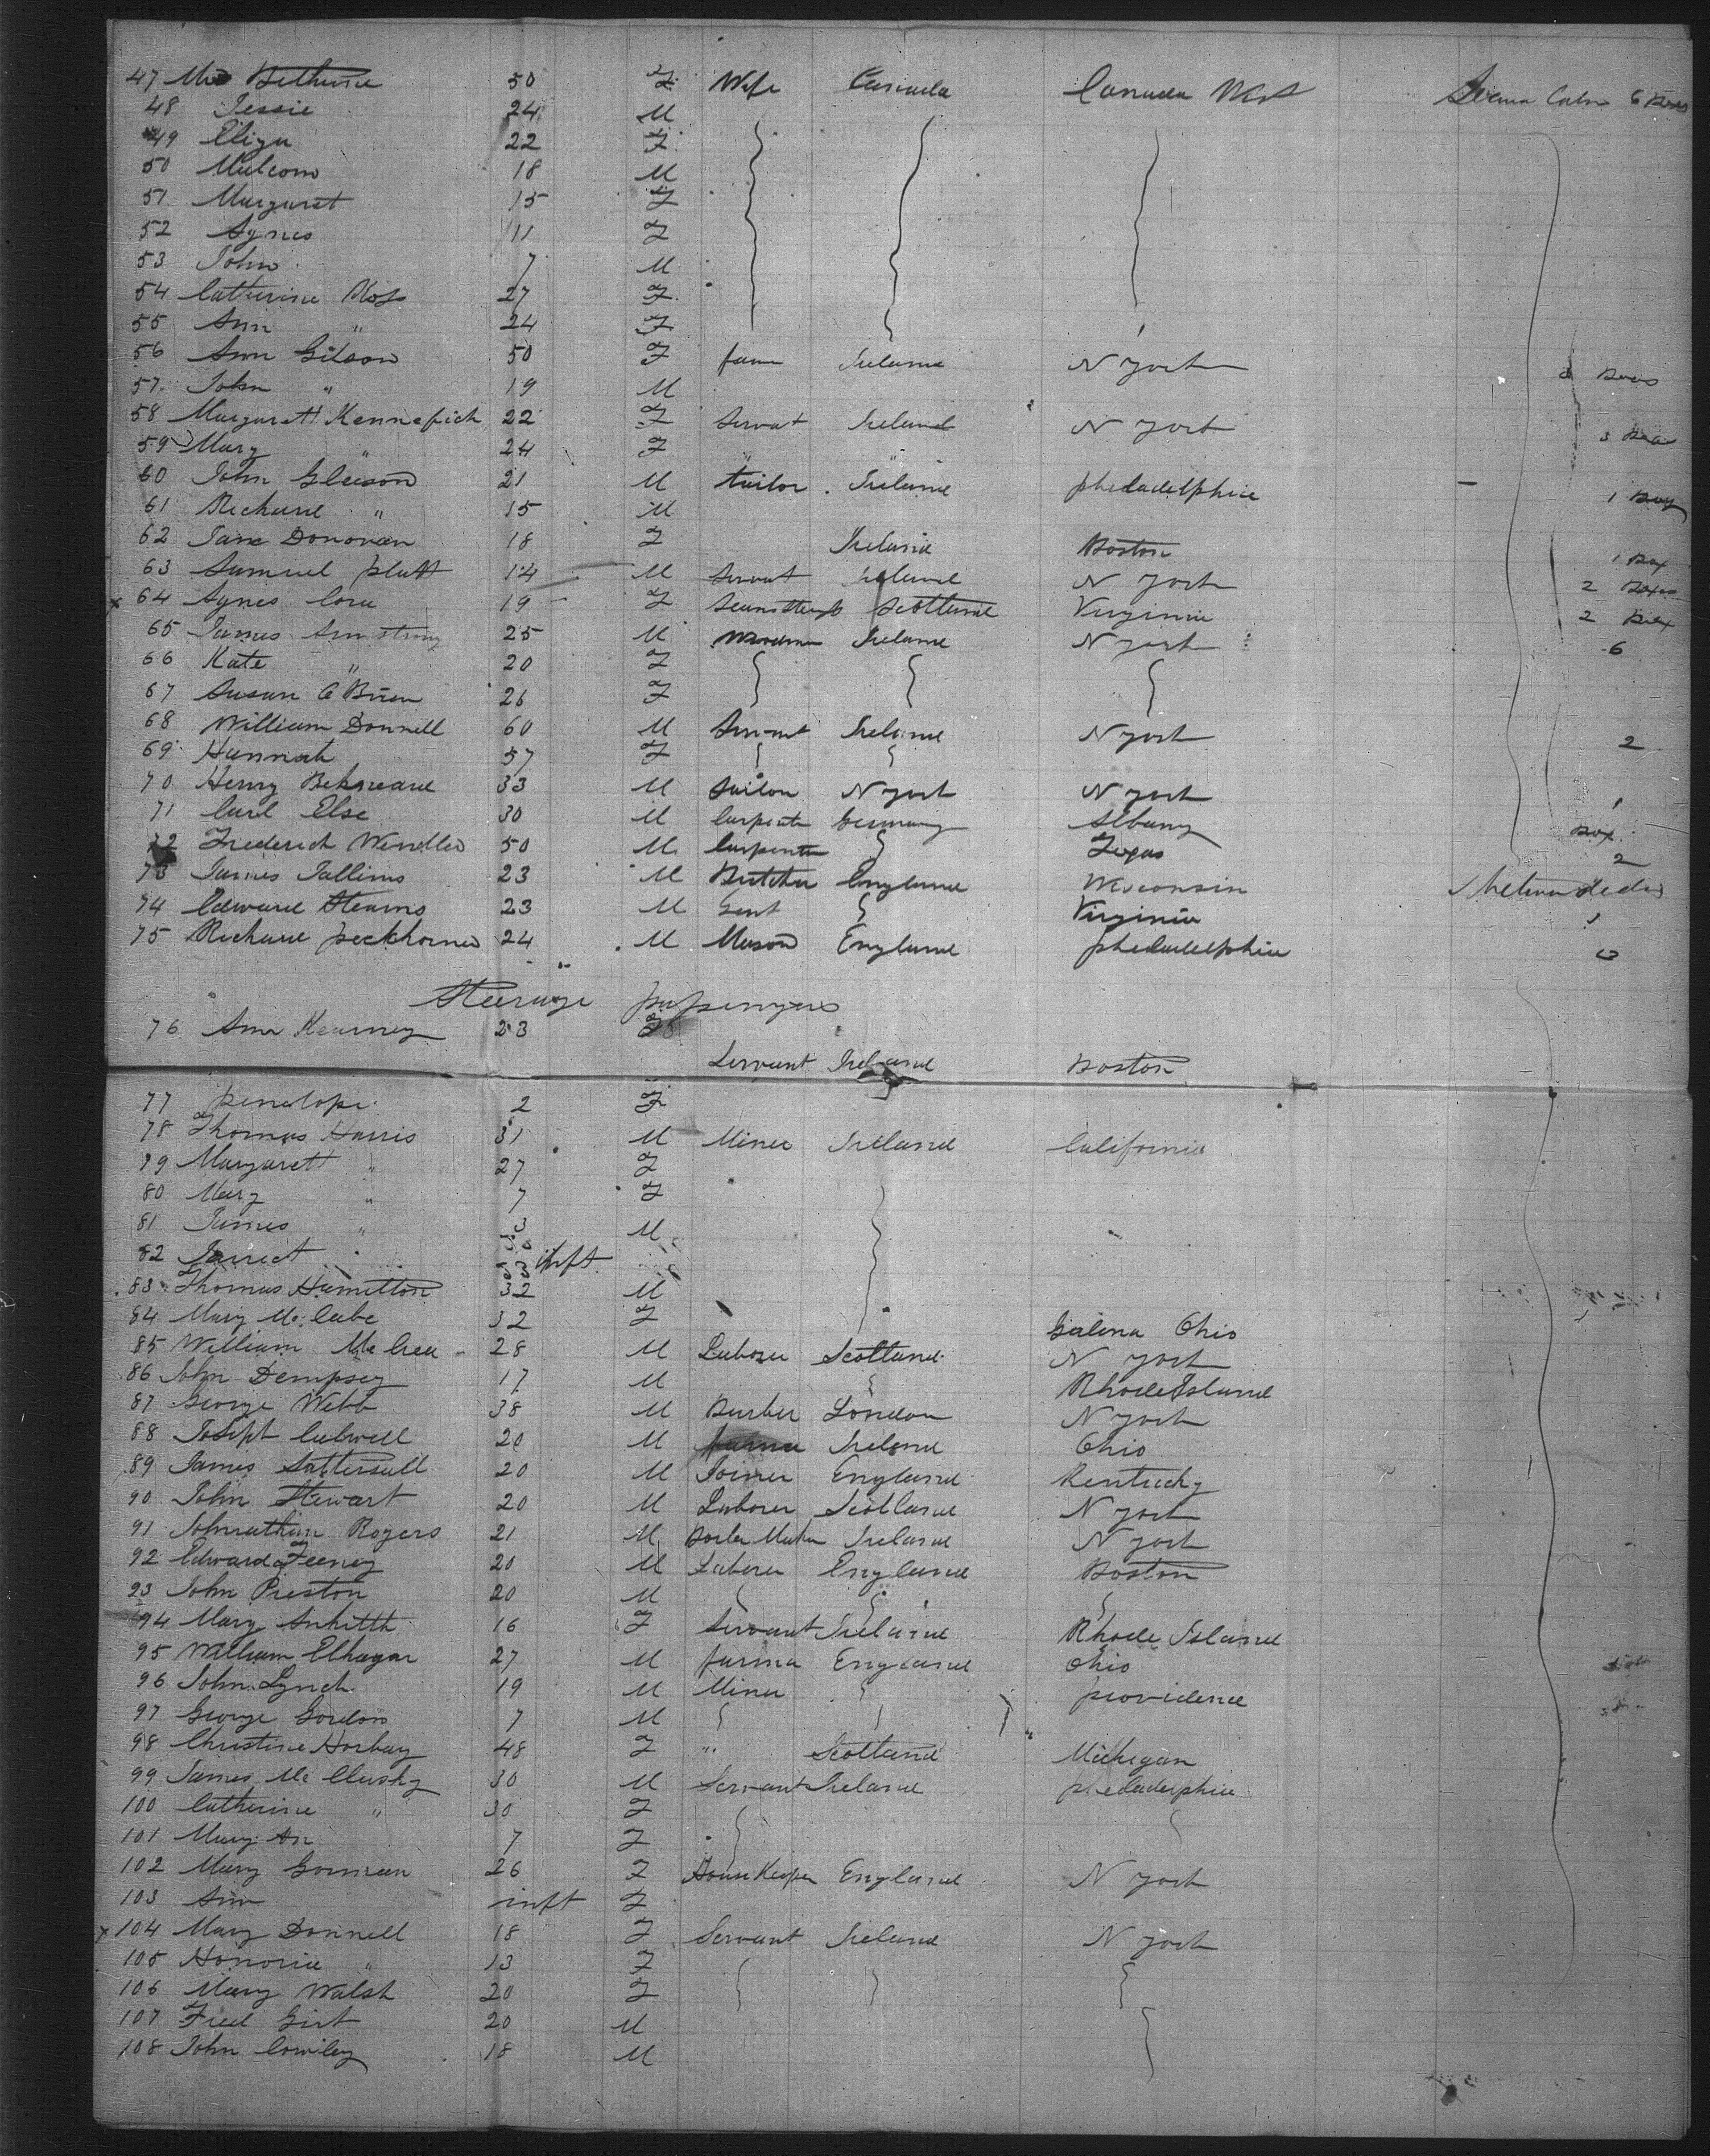 47 Mrs Bethune 50 F Wife Canada Canada West Second Cabin 6 Boxes
48 Jessie 24 M
49 Eliza 22 F
50 Malcom 18 M
51 Margaret 15 F
52 Agnes 11 F
53 John 7 M
54 Catherine Ross 27 F
55 Ann " 24 F
56 Ann Gilson 50 F farm Ireland N York 3 Boxes
57 John " 19 M
58 Margarett Kennefick 22 F Servat Ireland N York 3 Box
59 Mary " 24 F " "
60 John Gleeson 21 M tailor Ireland pheladelphia 1 Bag
61 Richard " 15 M
62 Jane Donovan 18 F Ireland Boston 1 Box
63 Samuel platt 14 M Servat Ireland N York 2 Boxes
x 64 Agnes Cora 19 F Scotland Virginia 2 Box
65 James Armstrong 25 M Ireland N York 6
66 Kate " 20 F
67 Susan O Brien 26 F
68 William Donnell 60 M Servant Ireland N York 2
69 Hannah 57 F
70 Henry 33 M Sailor N York N York 1
71 Carl Else 30 M Carpente Germany Albany Box
72 Frederick Windler 50 M Carpenter Texas 2
73 James Tallims 23 M Butcher England Wisconsin
74 Edward Stearns 23 M Gent Virginia 1
75 Richard peckhorne 24 M Mason England pheladelphia
Steerage passengers
76 Ann Kearney 23 F
Servant Ireland Boston
77 penelope 2 F
78 Thomas Harris 31 M Miner Ireland California
79 Margarett " 27 F
80 Mary " 7 F
81 James " 3 M
82 Jarrect inft
83 Thomas Hamilton 32 M
84 Mary Mc Cabe 32 F Galena Ohio
85 William Mc Crea 28 M Laborer Scotland N York
86 John Dempsey 17 M Rhode Island
87 George Webb 38 M Barber London N York
88 Joseph Calwell 20 M farmer Ireland Ohio
89 James Sattersall 20 M Joiner England Kentucky
90 John Stewart 20 M Laborer Scotland N York
91 Johnathan Rogers 21 M Boiler Maker Ireland N York
92 Edward Feeney 20 M Laborer England Boston
93 John Preston 20 M
94 Mary Ankitth 16 F Servant Ireland Rhode Island
95 William Elhagar 27 M farmer England Ohio
96 John Lynch 19 M Miner providence
97 George Gordon 7 M
98 Christine Horbury 48 F " Scotland Michigan
99 James Mc Clusky 30 M Servant Ireland pheladelphia
100 Catherine " 30 F
101 Mary An 7 F
102 Mary Gorman 26 F House Keeper England N York
103 Ann inft F
x 104 Mary Donnell 18 F Servant Ireland N York
105 Honoria " 13 F
106 Mary Walsh 20 F
107 Fred Girt 20 M
108 John Cowiley 18 M